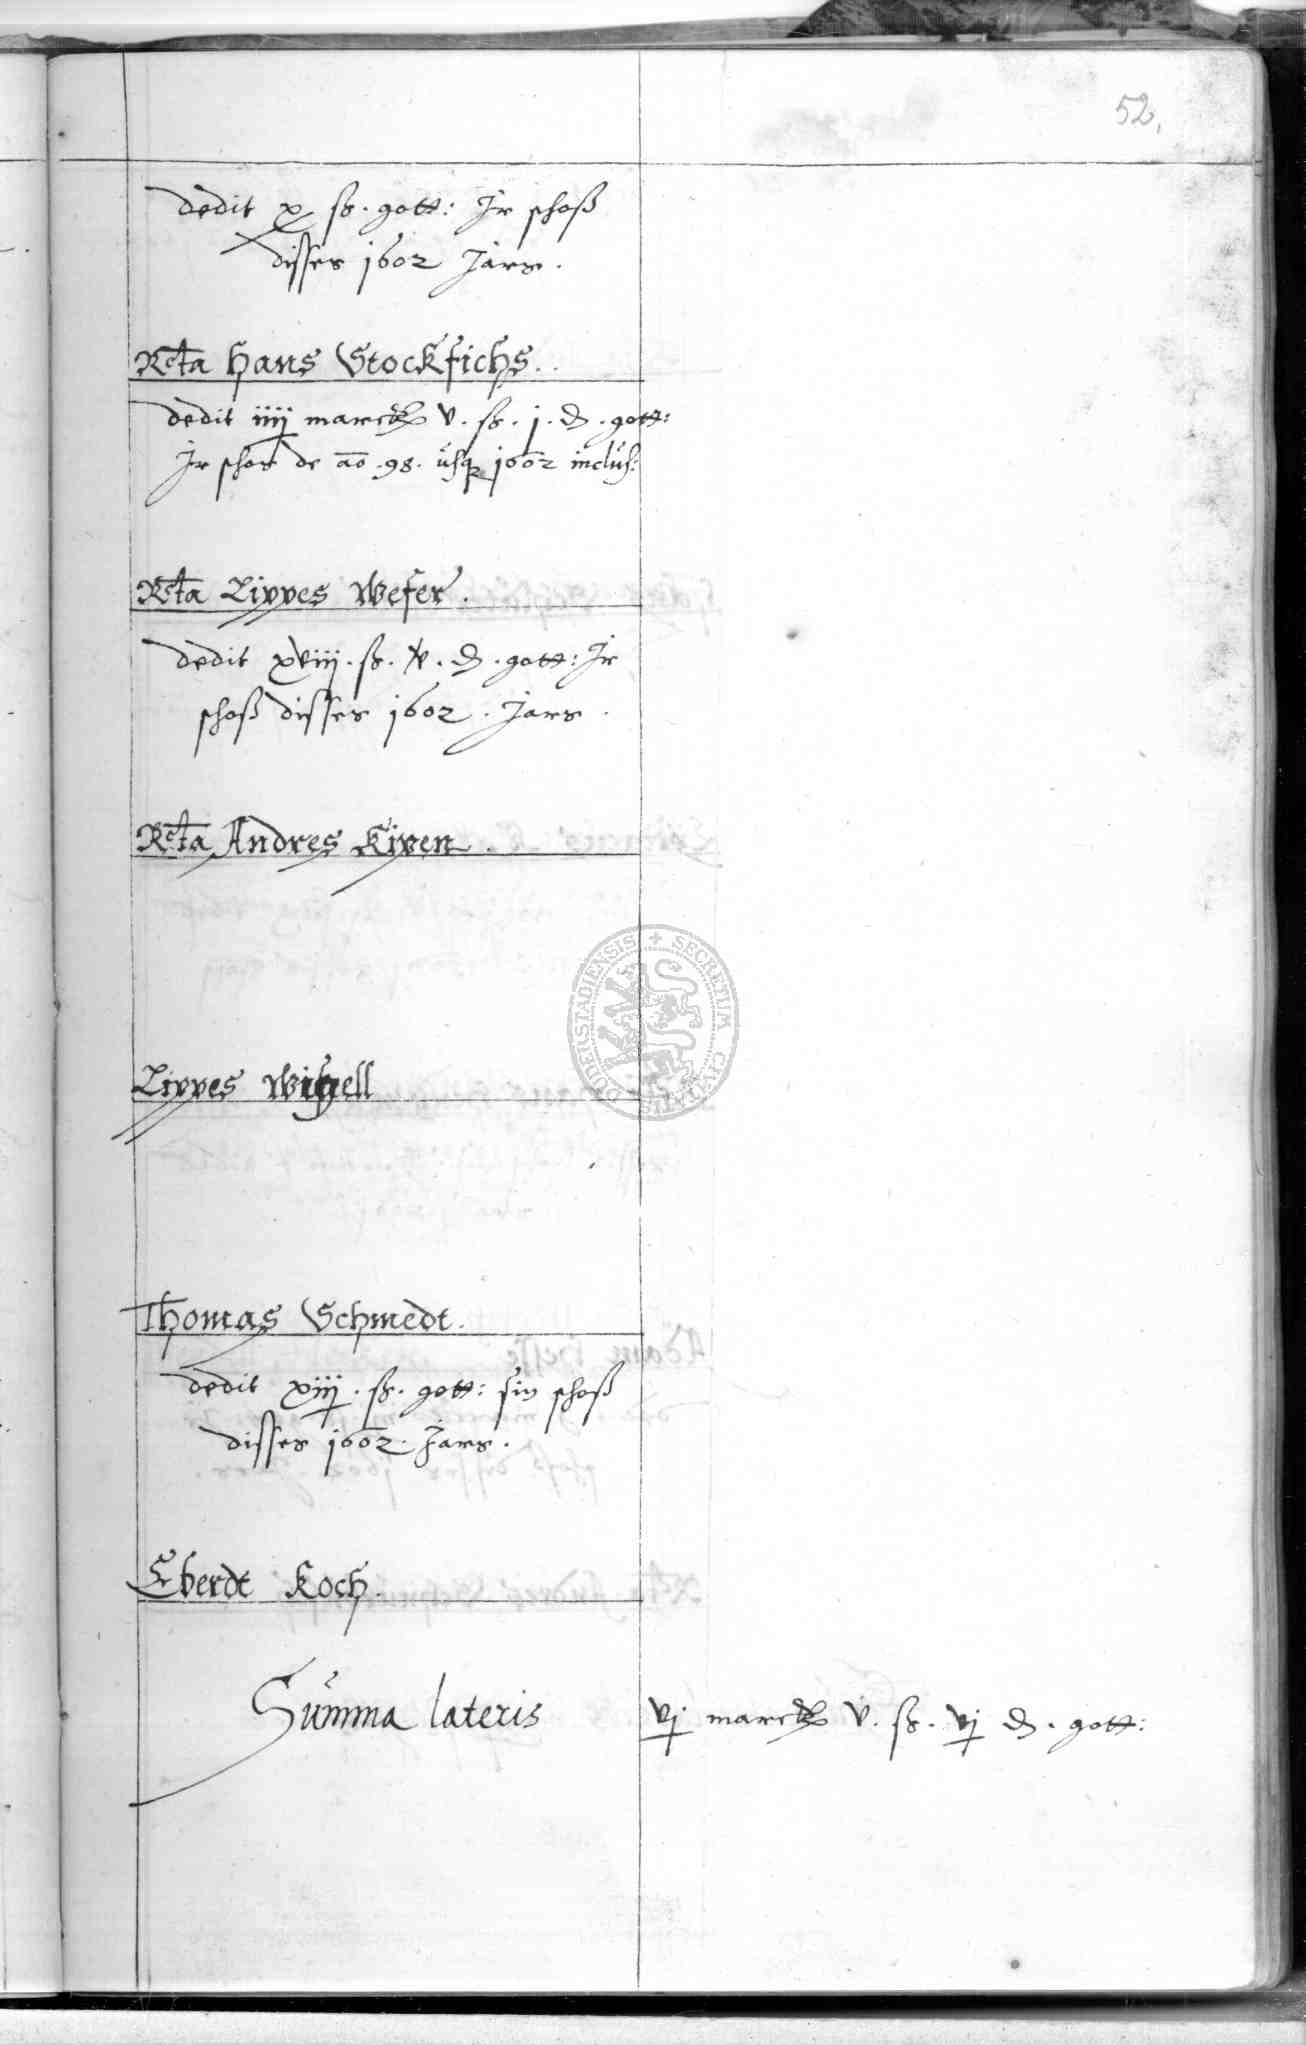 52.
dedit x ſß. gott: Jr schoß
disses 1602 Jars.
Rcta Hans Stockfichs.
dedit iiij marck v. ſß. j. d. gott:
Jr schos de ao. 98. usq 1602 inclus:
Rcta Lippes Wefer.
dedit xviij. ſß. v. d. gott: Jr
schoß disses 1602. Jars.
Rcta Andres Kipen.
Lippes
Thomas Schmedt.
dedit xiij. ſß. gott: sin schoß
disses 1602. Jars.
Eberdt Koch.
Summa lateris vj marck v. ſß. vj d. gott:
SECRETUM CIVITATIS DUDERSTADIENSIS